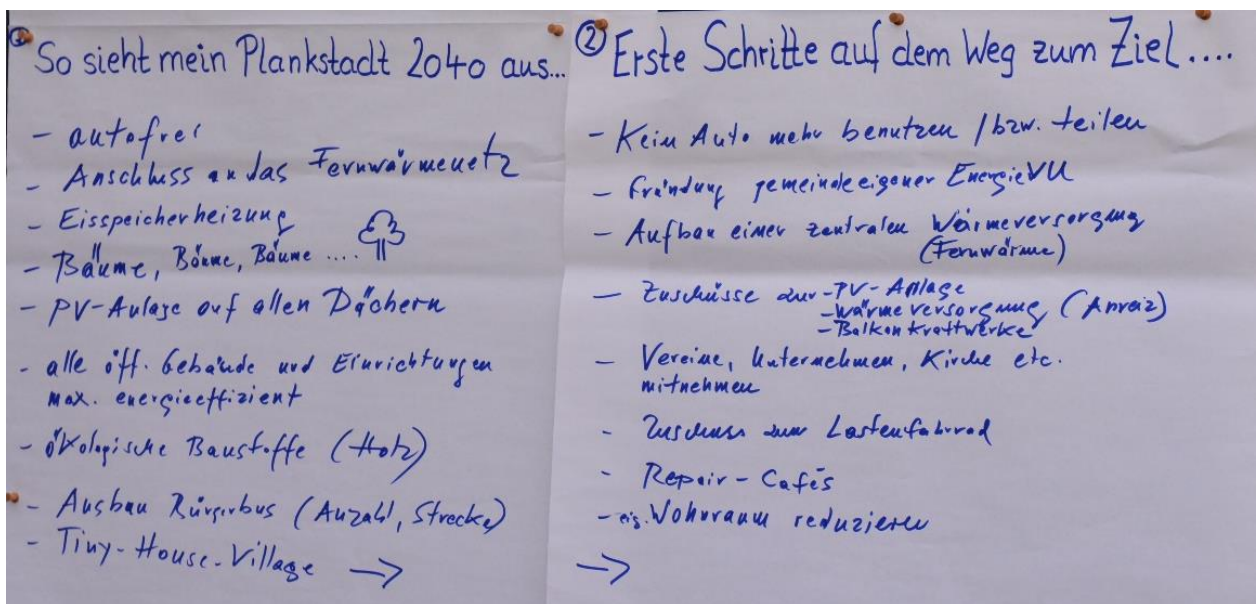 ① So sieht mein Plankstadt 2040 aus...
- autofrei
- Anschluss an das Fernwärmenetz
- Eisspeicherheizung
- Bäume, Bäume, Bäume ....
- PV-Anlage auf allen Dächern
- alle öff. Gebäude und Einrichtungen
max. energieeffizient
- ökologische Baustoffe (Holz)
- Ausbau Bürgerbus (Anzahl, Strecke)
- Tiny-House-Village →
② Erste Schritte auf dem Weg zum Ziel....
- Kein Auto mehr benutzen / bzw. teilen
- Gründung gemeindeeigener EnergieVU
- Aufbau einer zentralen Wärmeversorgung
(Fernwärme)
- Zuschüsse zur - PV-Anlage
- Wärmeversorgung (Anreiz)
- Balkonkraftwerke
- Vereine, Unternehmen, Kirche etc.
mitnehmen
- Zuschuss zum Lastenfahrrad
- Repair-Cafés
- eig. Wohnraum reduzieren
→